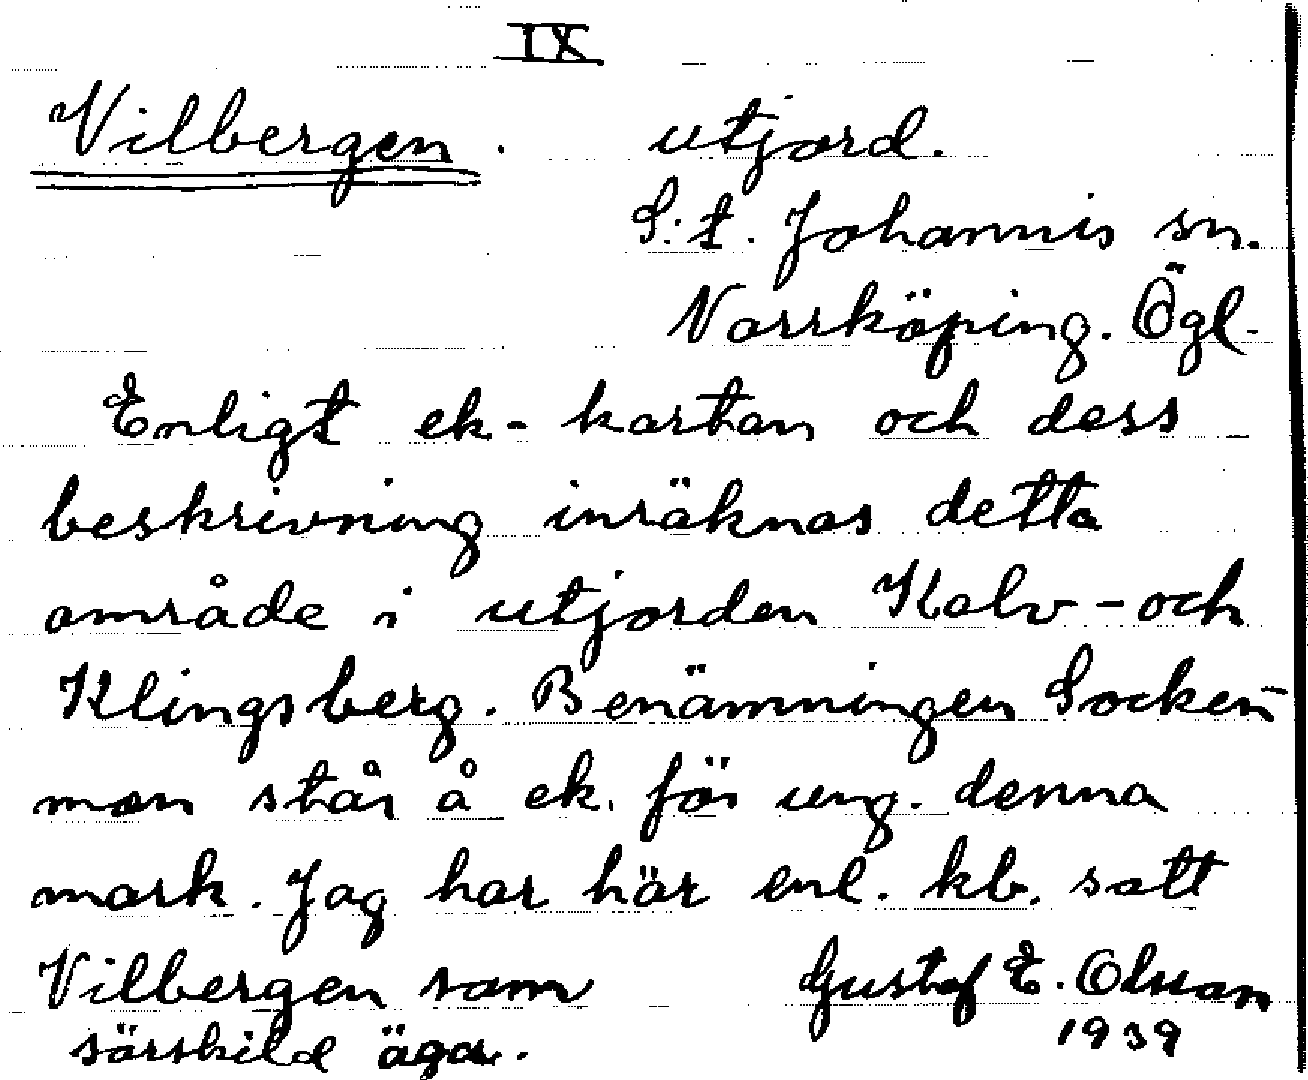 IX
Vilbergen. utjord.
S:t. Johannis sn.
Norrköping. Ögl.
Enligt ek-kartan och dess
beskrivning inräknas detta
område i utjorden Kalv-och
Klingsberg. Benämningen Socken-
man står å ek. för ung. denna
mark. Jag har här enl. kb. satt
Vilbergen som Gustaf E. Olsson
särskild äga. 1939